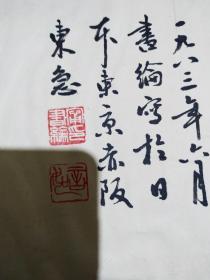 一九八三年六月
書綸寫於日
本東京赤阪
東急